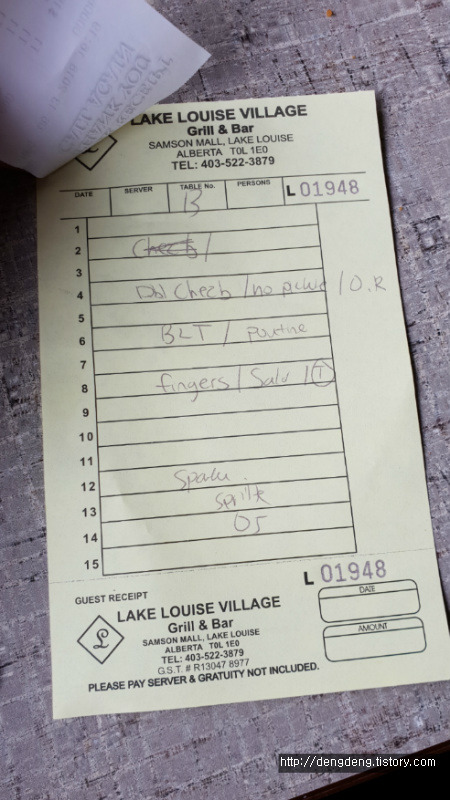 LAKE LOUISE VILLAGE
Grill & Bar
SAMSON MALL, LAKE LOUISE
ALBERTA T0L 1E0
TEL: 403-522-3879
DATE SERVER TABLE No. PERSONS L 01948
13
1
2
3
4 Dbl Cheeb / no pickle / O.R
5
6 BLT / poutine
7
8 fingers / Salad / T
9
10
11
12
13 Sprite
14 OJ
15
L 01948
GUEST RECEIPT
DATE
LAKE LOUISE VILLAGE
Grill & Bar
AMOUNT
SAMSON MALL, LAKE LOUISE
ALBERTA T0L 1E0
TEL: 403-522-3879
G.S.T. # R13047 8977
PLEASE PAY SERVER & GRATUITY NOT INCLUDED.
http://dengdeng.tistory.com